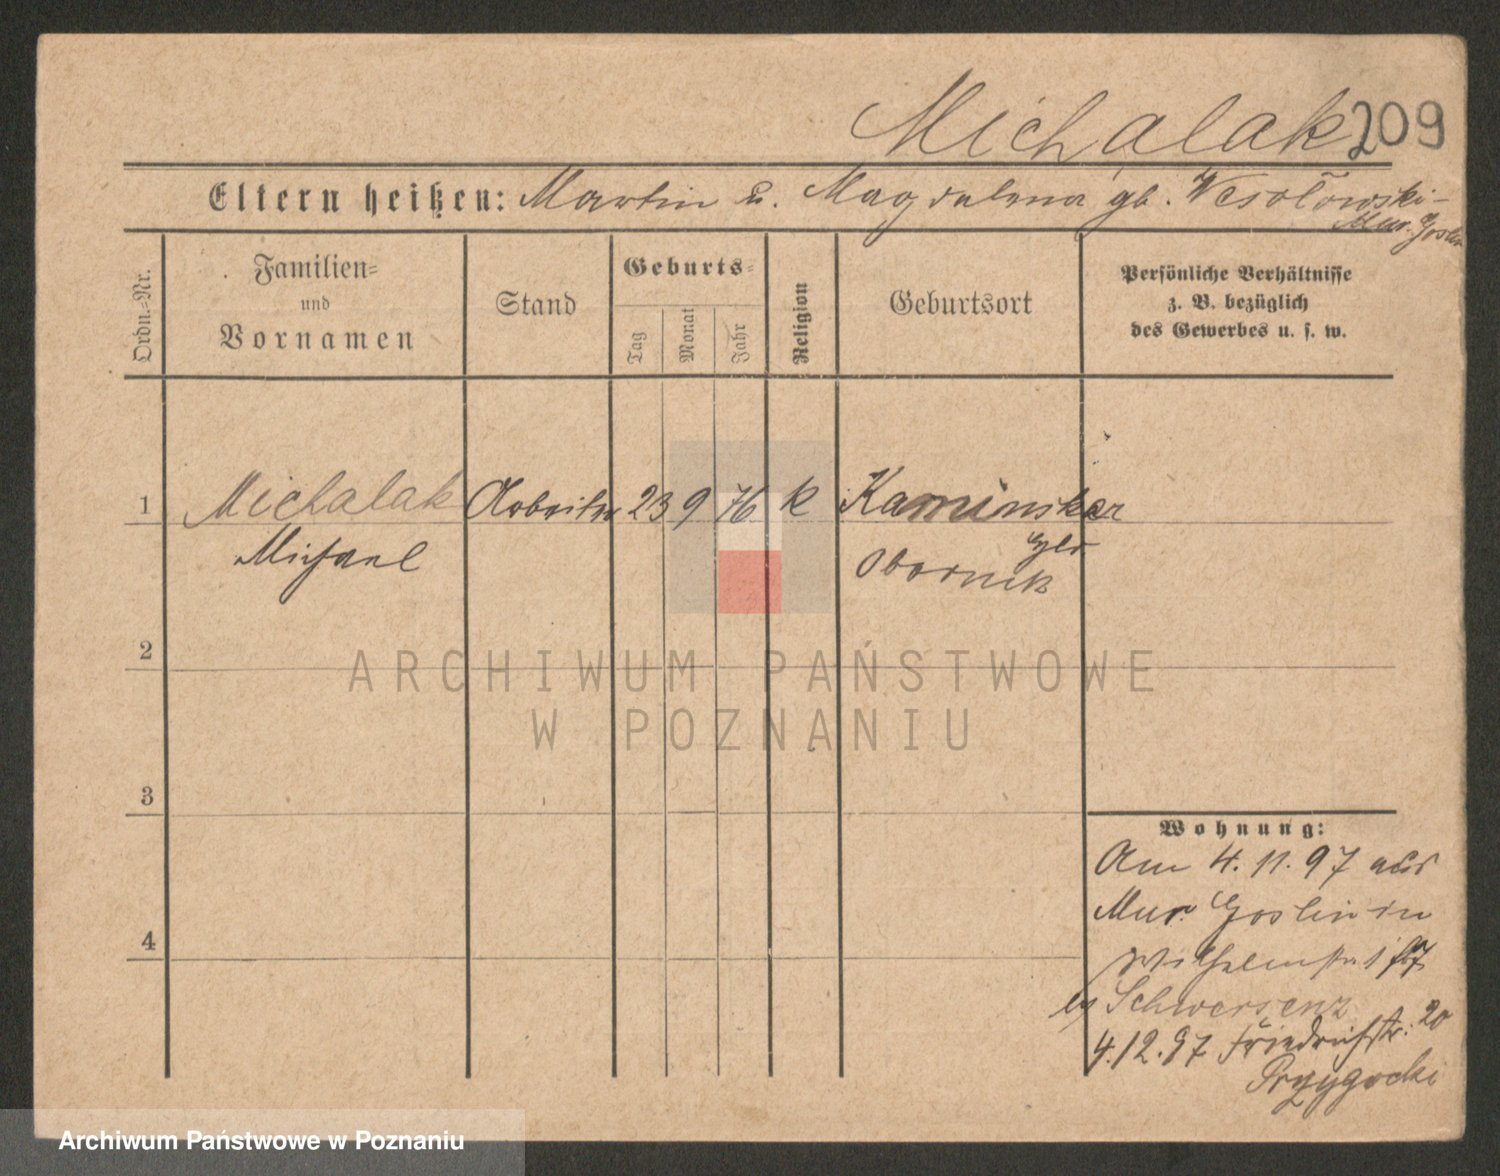 Michalak 209
Eltern heißen: Martin u. Magdalena gb. Wesołowski-
Mur. Goslin
Ordn.-Nr.
Familien-
und
Vornamen
Stand
Geburts-
Tag
Monat
Jahr
Religion
Geburtsort
Persönliche Verhältnisse
z. B. bezüglich
des Gewerbes u. s. w.
1 Michalak Arbeiter 23 9 76 k Kaminsker
Michael
Obornik
2
ARCHIWUM PAŃSTWOWE
W POZNANIU
3
Wohnung:
Am 4.11.97 aus
Mur. Goslin in
4
Wilhelmstr.
Schwersenz
4.12.97 Friedrichstr. 20
Przygocki
Archiwum Państwowe w Poznaniu